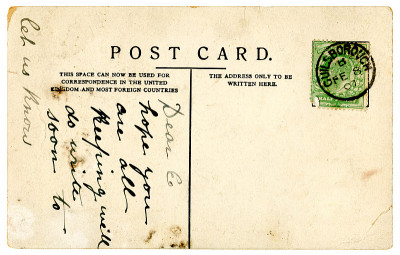 POST CARD.
THIS SPACE CAN NOW BE USED FOR
CORRESPONDENCE IN THE UNITED
KINGDOM AND MOST FOREIGN COUNTRIES
THE ADDRESS ONLY TO BE
WRITTEN HERE.
GUILSBOROUGH
FE 8
Dear E
hope you
are all
keeping well
do write
soon to
let us know